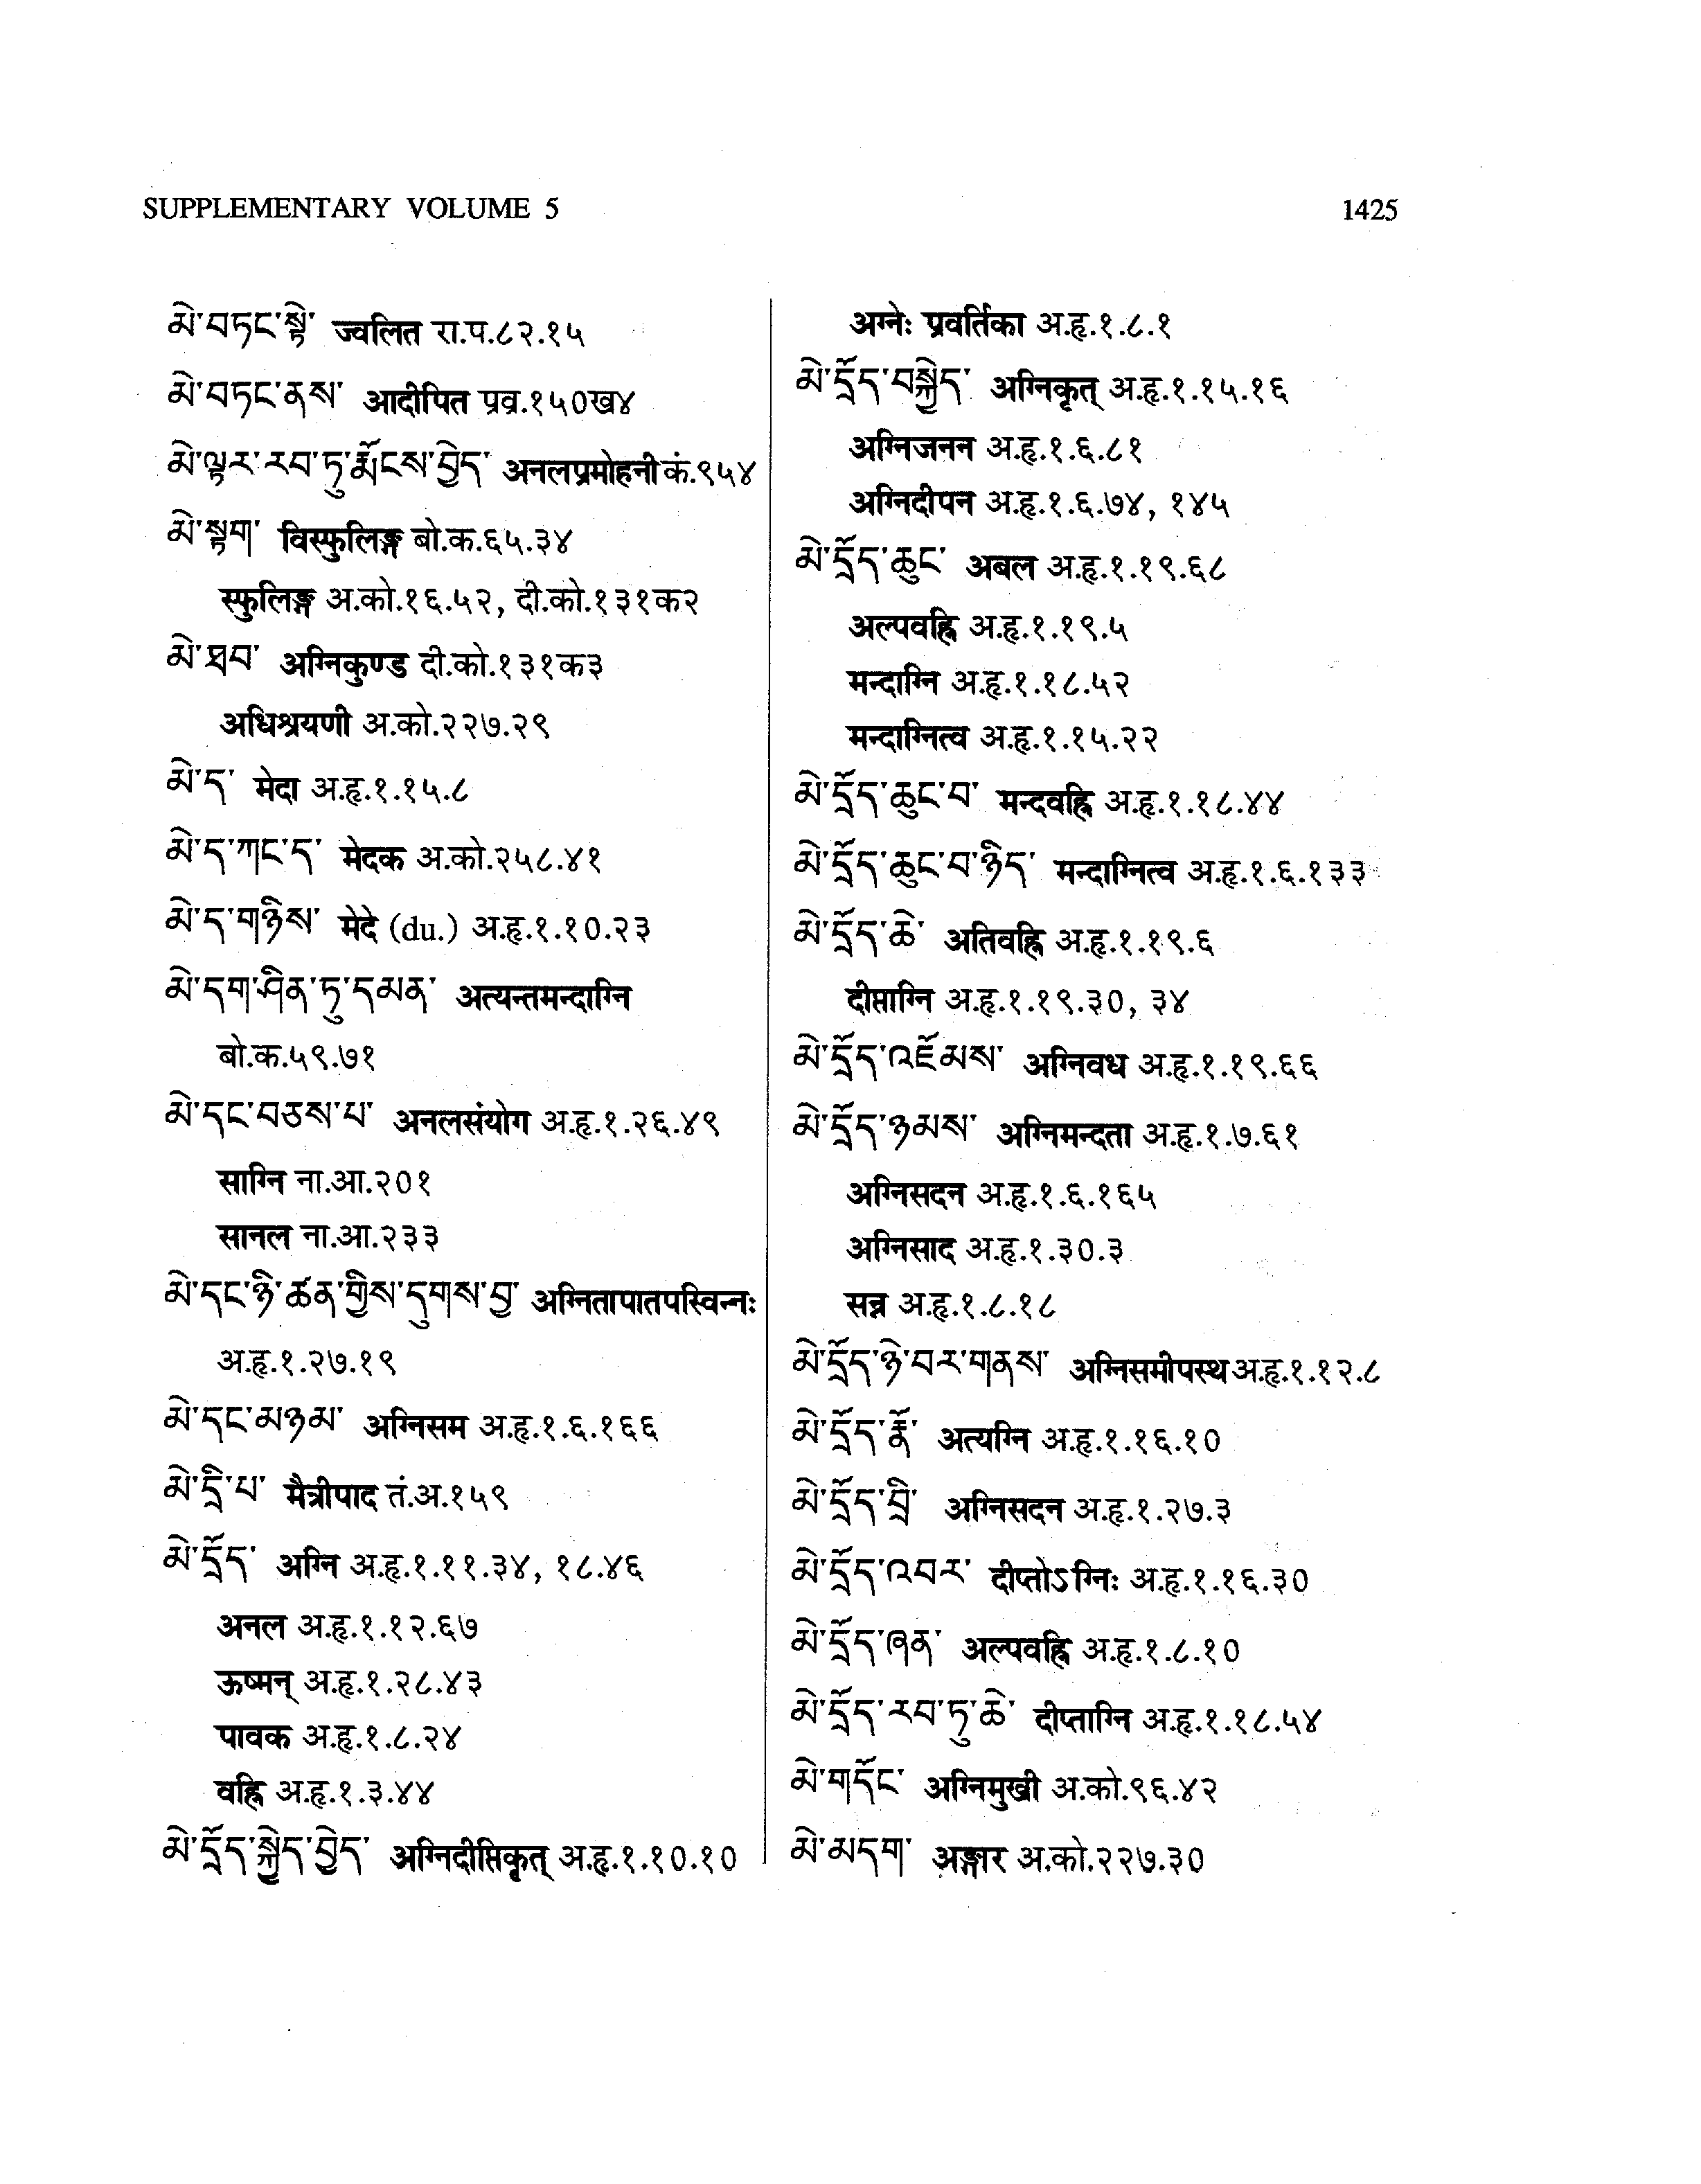 SUPPLEMENTARY VOLUME 5
1425
མེ་བཏང་སྟེ་ ज्वलित रा.प.८२.१५
མེ་བཏང་ནས་ आदीपित प्रव्र.१५०ख४
མེ་ལྟར་རབ་ཏུ་རྨོངས་བྱེད་ अनलप्रमोहनी कं.९५४
མེ་སྟག་ विस्फुलिङ्ग बो.क.६५.३४
स्फुलिङ्ग अ.को.१६.५२, दी.को.१३१क२
མེ་ཐབ་ अग्निकुण्ड दी.को.१३१क३
अधिश्रयणी अ.को.२२७.२९
མེ་ད་ मेदा अ.हृ.१.१५.८
མེ་ད་ཀང་ད་ मेदक अ.को.२५८.४१
མེ་ད་གཉིས་ मेदे (du.) अ.हृ.१.१०.२३
མེ་དག་ཤིན་ཏུ་དམན་ अत्यन्तमन्दाग्नि
बो.क.५९.७१
མེ་དང་བཅས་པ་ अनलसंयोग अ.हृ.१.२६.४९
साग्नि ना.आ.२०१
सानल ना.आ.२३३
མེ་དང་ཉི་ཚན་གྱིས་དུགས་བྱ་ अग्नितापातपस्विन्नः
अ.हृ.१.२७.१९
མེ་དང་མཉམ་ अग्निसम अ.हृ.१.६.१६६
མེ་དྲི་པ་ मैत्रीपाद तं.अ.१५९
མེ་དྲོད་ अग्नि अ.हृ.१.११.३४, १८.४६
अनल अ.हृ.१.१२.६७
ऊष्मन् अ.हृ.१.२८.४३
पावक अ.हृ.१.८.२४
वह्नि अ.हृ.१.३.४४
མེ་དྲོད་སྐྱེད་བྱེད་ अग्निदीप्तिकृत् अ.हृ.१.१०.१०
अग्नेः प्रवर्तिका अ.हृ.१.८.१
མེ་དྲོད་བསྐྱེད་ अग्निकृत् अ.हृ.१.१५.१६
अग्निजनन अ.हृ.१.६.८१
अग्निदीपन अ.हृ.१.६.७४, १४५
མེ་དྲོད་ཆུང་ अबल अ.हृ.१.१९.६८
अल्पवह्नि अ.हृ.१.१९.५
मन्दाग्नि अ.हृ.१.१८.५२
मन्दाग्नित्व अ.हृ.१.१५.२२
མེ་དྲོད་ཆུང་བ་ मन्दवह्नि अ.हृ.१.१८.४४
མེ་དྲོད་ཆུང་བ་ཉིད་ मन्दाग्नित्व अ.हृ.१.६.१३३
མེ་དྲོད་ཆེ་ अतिवह्नि अ.हृ.१.१९.६
दीप्ताग्नि अ.हृ.१.१९.३०, ३४
མེ་དྲོད་འཇོམས་ अग्निवध अ.हृ.१.१९.६६
མེ་དྲོད་ཉམས་ अग्निमन्दता अ.हृ.१.७.६१
अग्निसदन अ.हृ.१.६.१६५
अग्निसाद अ.हृ.१.३०.३
सन्न अ.हृ.१.८.१८
མེ་དྲོད་ཉེ་བར་གནས་ अग्निसमीपस्थ अ.हृ.१.१२.८
མེ་དྲོད་རྣོ་ अत्यग्नि अ.हृ.१.१६.१०
མེ་དྲོད་བྲི་ अग्निसदन अ.हृ.१.२७.३
མེ་དྲོད་འབར་ दीप्तोऽग्निः अ.हृ.१.१६.३०
མེ་དྲོད་ཞན་ अल्पवह्नि अ.हृ.१.८.१०
མེ་དྲོད་རབ་ཏུ་ཆེ་ दीप्ताग्नि अ.हृ.१.१८.५४
མེ་གདོང་ अग्निमुखी अ.को.९६.४२
མེ་མདག་ अङ्गार अ.को.२२७.३०